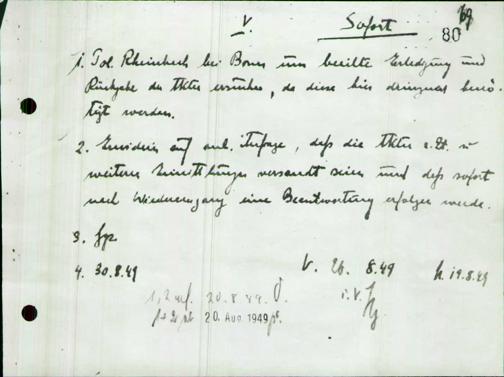 V. Sofort
80
1. Pol. Rheinbach bei Bonn um beeilte Erledigung und
Rückgabe der Akten ersuchen, da diese hier dringend benö-
tigt werden.
2. Erwidern auf anl. Anfrage, daß die Akten z. Zt. zu
weiteren Ermittlungen versandt seien und daß sofort
nach Wiedereingang eine Beantwortung erfolgen werde.
3.
4. 30.8.49 V. 26. 8.49 19.8.49
1, 2 20.8.49. i.V.
20. Aug. 1949